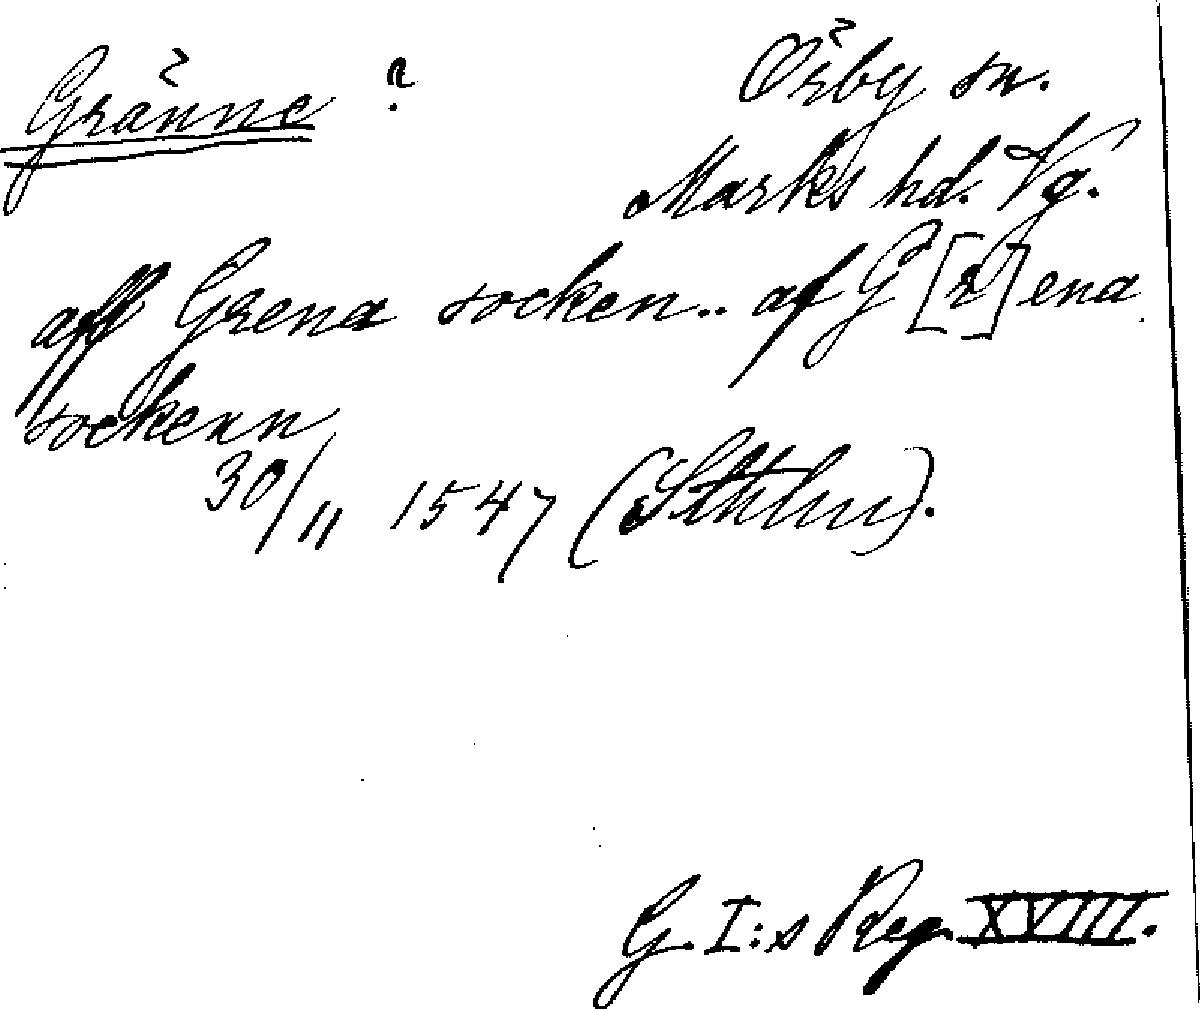 Gränne ?
Örby sn.
Marks hd. Vg.
aff Grena socken.. af G[r]ena
sockenn
30/11 1547 (Sthlm).
G. I:s Reg. XVIII.